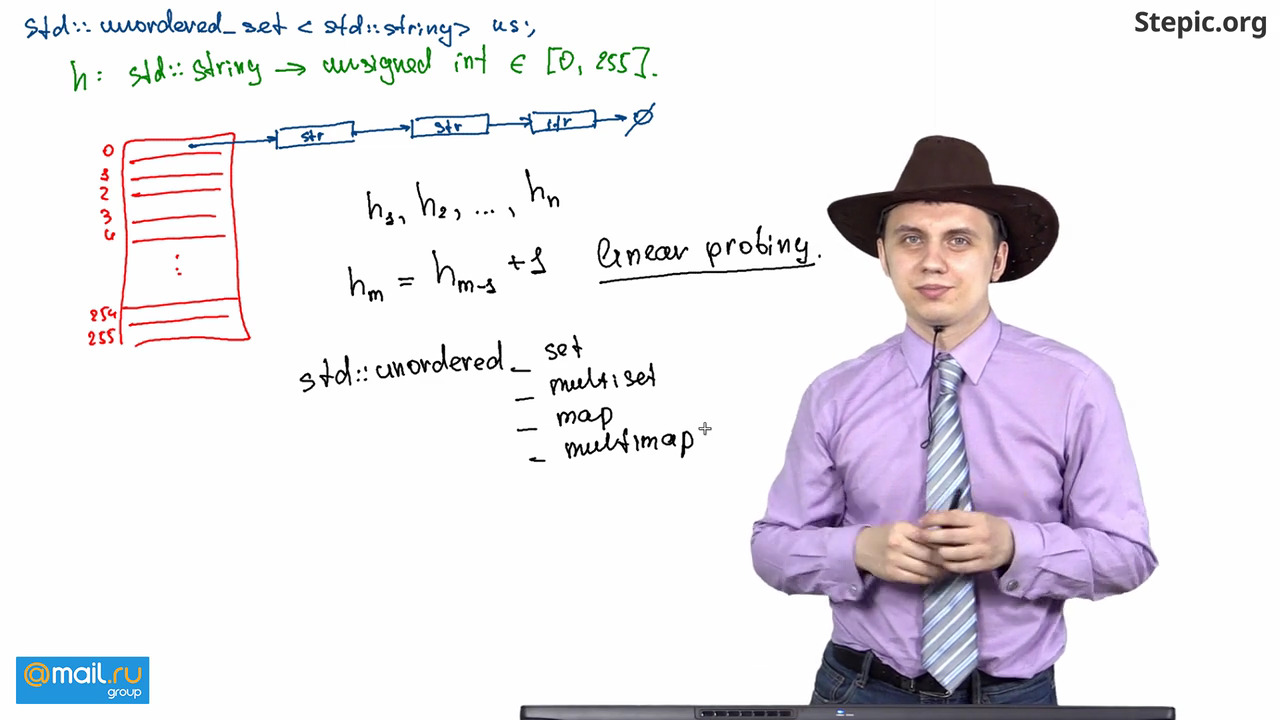 Stepic.org
std::unordered_set < std::string> us;
h: std::string → unsigned int ∈ [0, 255].
0
1
2
3
4
⋮
254
255
str
str
str
∅
h1, h2, ..., hn
hm = hm-1 + 1
linear probing.
std::unordered_ set
_ multiset
_ map
_ multimap
@mail.ru
group